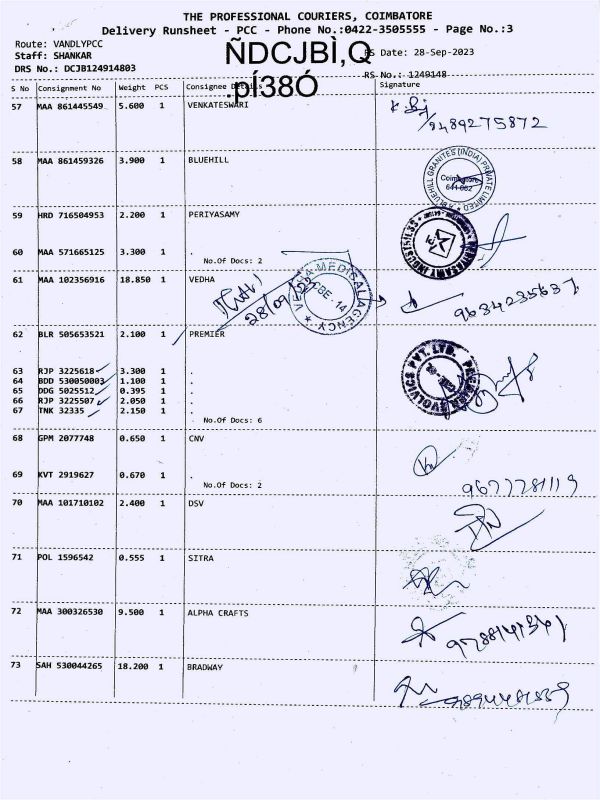 THE PROFESSIONAL COURIERS, COIMBATORE
Delivery Runsheet - PCC - Phone No.:0422-3505555 - Page No.:3
Route: VANDLYPCC
Staff: SHANKAR
DRS No.: DCJB124914803
ÑDCJBÌ,Q
.pÍ38Ó
RS Date: 28-Sep-2023
RS No.: 1249148
S No Consignment No Weight PCS Consignee Details Signature
57 MAA 861445549 5.600 1 VENKATESWARI
9489275872
58 MAA 861459326 3.900 1 BLUEHILL
BLUEHILL GRANITES (INDIA) PRIVATE LIMITED
Coimbatore
59 HRD 716504953 2.200 1 PERIYASAMY
60 MAA 571665125 3.300 1 .
No.Of Docs: 2
61 MAA 102356916 18.850 1 VEDHA
VEDHA MEDICAL AGENCY
CBE - 14
9634235637
62 BLR 505653521 2.100 1 PREMIER
PREMIER EVOLVICS PVT. LTD.
63 RJP 3225618 3.300 1 .
64 BDD 530050003 1.100 1 .
65 DDG 5025512 0.395 1 .
66 RJP 3225507 2.050 1 .
67 TNK 32335 2.150 1 .
No.Of Docs: 6
68 GPM 2077748 0.650 1 CNV
69 KVT 2919627 0.670 1 .
No.Of Docs: 2
9677781119
70 MAA 101710102 2.400 1 DSV
71 POL 1596542 0.555 1 SITRA
72 MAA 300326530 9.500 1 ALPHA CRAFTS
73 SAH 530044265 18.200 1 BRADWAY